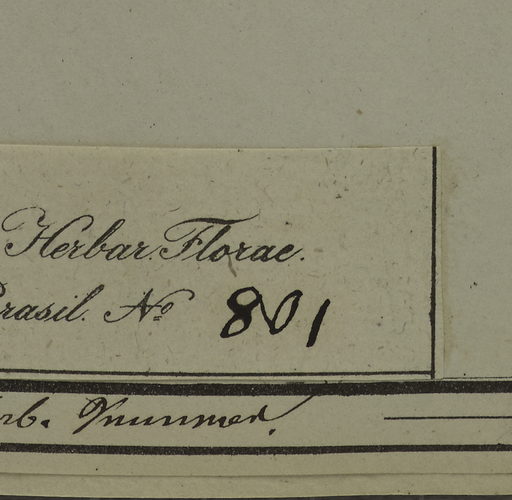 Herbar. Florae.
rasil. No 801
rb.